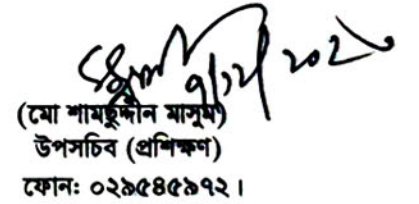 ৭/১২/২০২০
(মো শামছুদ্দীন মাসুম)
উপসচিব (প্রশিক্ষণ)
ফোন: ০২৯৫৪৫৯৭২।